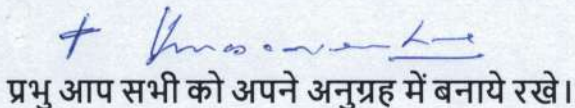 प्रभु आप सभी को अपने अनुग्रह में बनाये रखे।